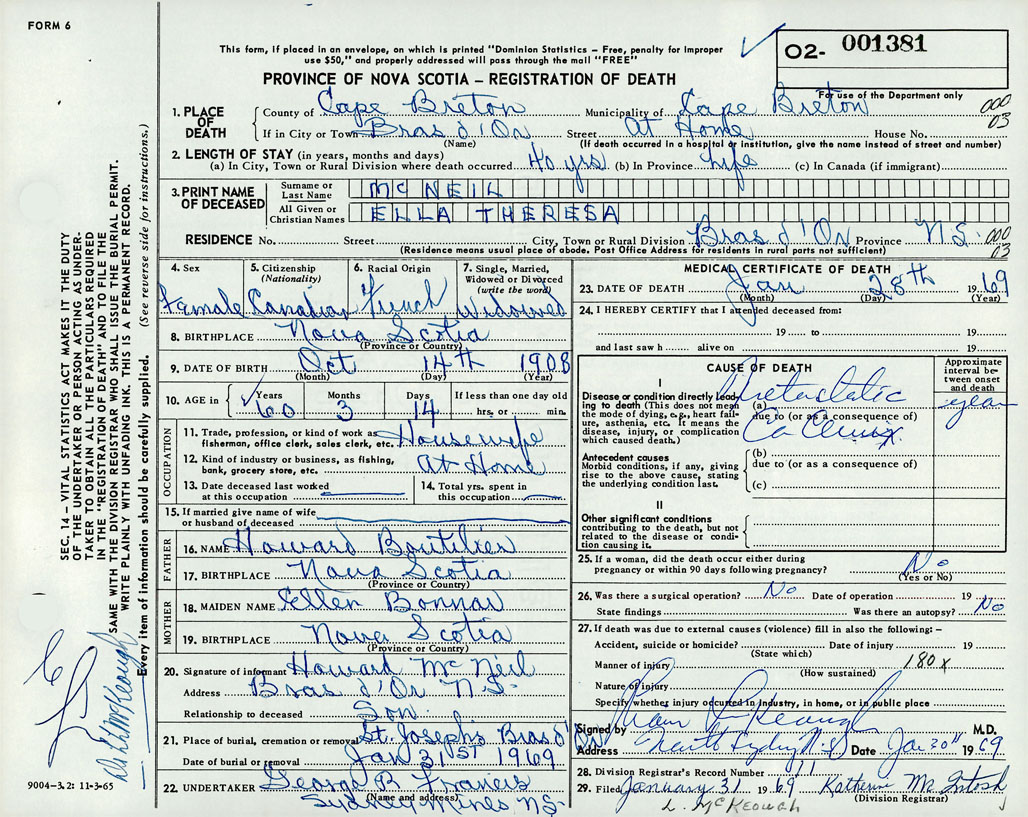 FORM 6
This form, if placed in an envelope, on which is printed "Dominion Statistics – Free, penalty for improper
use $50," and properly addressed will pass through the mail "FREE"
O2- 001381
For use of the Department only
PROVINCE OF NOVA SCOTIA – REGISTRATION OF DEATH
000
03
1. PLACE OF DEATH County of Cape Breton Municipality of Cape Breton
If in City or Town Bras d'Or Street At Home House No.
(Name) (If death occurred in a hospital or institution, give the name instead of street and number)
2. LENGTH OF STAY (in years, months and days)
(a) In City, Town or Rural Division where death occurred 40 yrs (b) In Province Life (c) In Canada (if immigrant)
3. PRINT NAME OF DECEASED
Surname or Last Name MCNEIL
All Given or Christian Names ELLA THERESA
RESIDENCE No. Street City, Town or Rural Division Bras d'Or Province N.S. 000
03
(Residence means usual place of abode. Post Office Address for residents in rural parts not sufficient)
4. Sex 5. Citizenship (Nationality) 6. Racial Origin 7. Single, Married, Widowed or Divorced (write the word)
Female Canadian French Widowed
8. BIRTHPLACE Nova Scotia
(Province or Country)
9. DATE OF BIRTH Oct 14th 1908
(Month) (Day) (Year)
10. AGE in Years Months Days If less than one day old
60 3 14 hrs. or min.
OCCUPATION
11. Trade, profession, or kind of work as fisherman, office clerk, sales clerk, etc. Housewife
12. Kind of industry or business, as fishing, bank, grocery store, etc. At Home
13. Date deceased last worked at this occupation
14. Total yrs. spent in this occupation
15. If married give name of wife or husband of deceased
FATHER
16. NAME Howard Boutilier
17. BIRTHPLACE Nova Scotia
(Province or Country)
MOTHER
18. MAIDEN NAME Ellen Bonnar
19. BIRTHPLACE Nova Scotia
(Province or Country)
20. Signature of informant Howard McNeil
Address Bras d'Or N.S.
Relationship to deceased Son
21. Place of burial, cremation or removal St. Joseph's Bras d'Or
Date of burial or removal Jan 31st 1969
22. UNDERTAKER George B Francis
(Name and address)
Sydney Mines NS
MEDICAL CERTIFICATE OF DEATH
23. DATE OF DEATH Jan 28th 1969
(Month) (Day) (Year)
24. I HEREBY CERTIFY that I attended deceased from:
19 to 19
and last saw h alive on 19
CAUSE OF DEATH
Approximate interval between onset and death
I
Disease or condition directly leading to death (This does not mean the mode of dying, e.g., heart failure, asthenia, etc. It means the disease, injury, or complication which caused death.)
(a) Metastatic year
due to (or as a consequence of)
Ca Cervix
Antecedent causes
Morbid conditions, if any, giving rise to the above cause, stating the underlying condition last.
(b)
due to (or as a consequence of)
(c)
II
Other significant conditions
contributing to the death, but not related to the disease or condition causing it.
25. If a woman, did the death occur either during pregnancy or within 90 days following pregnancy? No
(Yes or No)
26. Was there a surgical operation? No Date of operation 19
State findings Was there an autopsy? No
27. If death was due to external causes (violence) fill in also the following: –
Accident, suicide or homicide? Date of injury 19
(State which)
Manner of injury 180x
(How sustained)
Nature of injury
Specify whether injury occurred in industry, in home, or in public place
Signed by Keough M.D.
Address North Sydney N.S. Date Jan 30th 1969
28. Division Registrar's Record Number 11
29. Filed January 31 1969 Katherine McIntosh
(Division Registrar)
L. McKeough
SEC. 14 – VITAL STATISTICS ACT MAKES IT THE DUTY
OF THE UNDERTAKER OR PERSON ACTING AS UNDERTAKER
TO OBTAIN ALL THE PARTICULARS REQUIRED
IN THE "REGISTRATION OF DEATH" AND TO FILE THE
SAME WITH THE DIVISION REGISTRAR WHO SHALL ISSUE THE BURIAL PERMIT.
WRITE PLAINLY WITH UNFADING INK. THIS IS A PERMANENT RECORD.
Every item of information should be carefully supplied. (See reverse side for instructions.)
McKeough
9004-3.2: 11-3-65